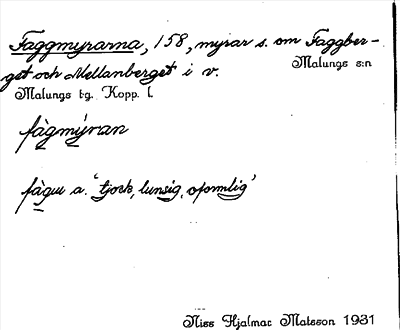 Faggmyrarna, 158, myrar s. om Faggber-
get och Mellanberget i v.
Malungs s:n
Malungs tg. Kopp. l.
fàgmýran
fàgu a. 'tjock, lunsig, oformlig'
Niss Hjalmar Matsson 1931